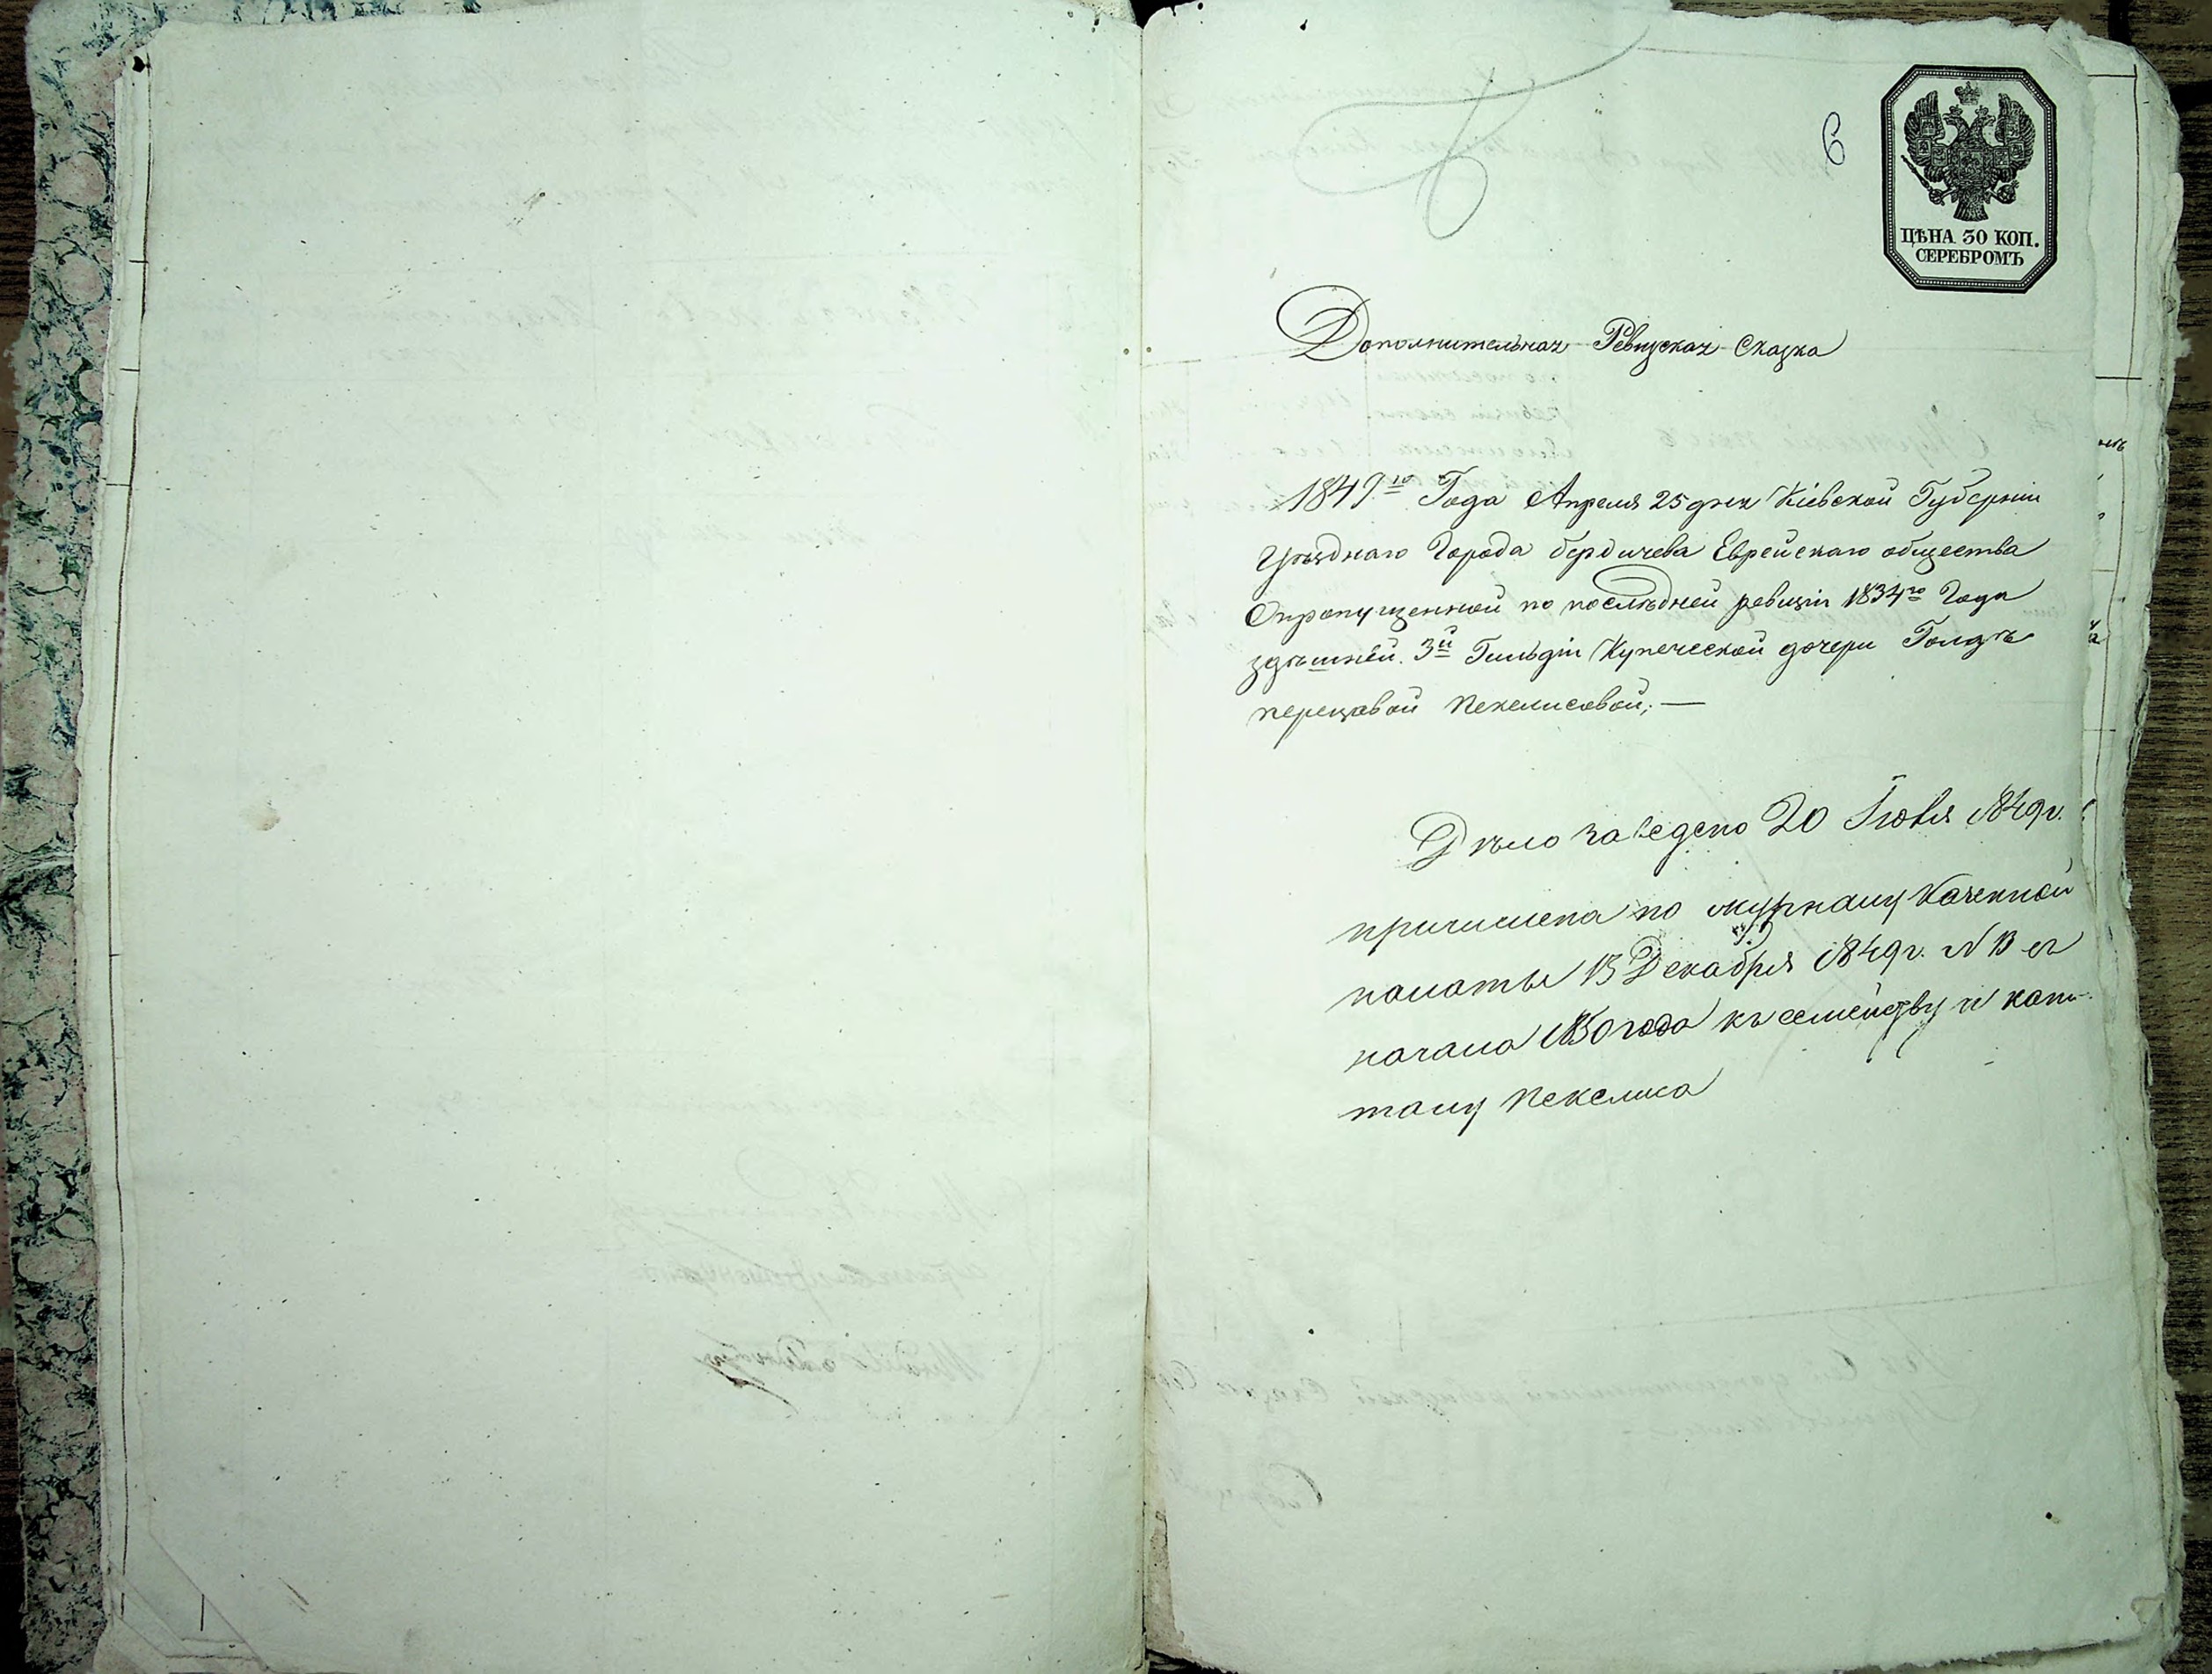 6
ЦѢНА 30 КОП.
СЕРЕБРОМЪ
Дополнительная Ревизская Сказка
1849го Года Апреля 25 дня Кіевской Губерніи
Уѣзднаго Города бердичева Еврейскаго общества
О пропущенной по послѣдней ревизіи 1834го Года
здѣшней 3й Гильдіи Купеческой дочери Голдѣ
перецовой Пекелисовой; —
Дѣло заведено 20 1849 г.
причислена по журналу Казенной
палаты Декабря 1849 г. N 13 съ
начала 1850 года къ семейству и капи-
талу Пекелиса